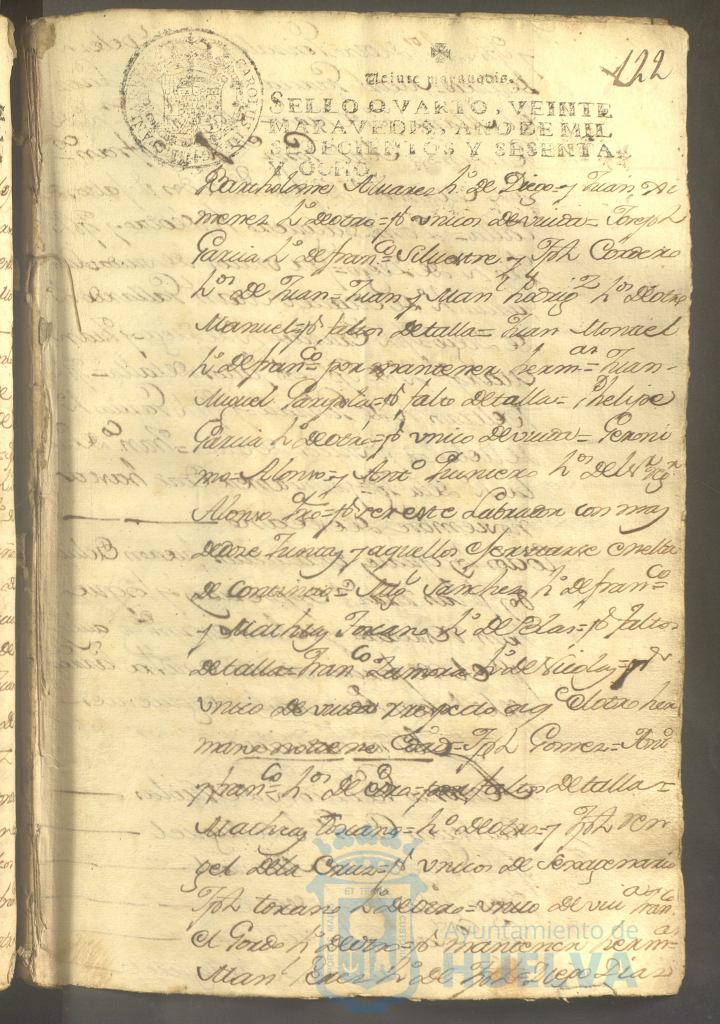 122
Veinte maravedis.
SELLO QVARTO, VEINTE
MARAVEDIS, AÑO DE MIL
SETECIENTOS Y SESENTA
Y OCHO.
Bartholome Alvarez hº de Diego= y Juan Xi
menez hº de otro= pr vnicos de viuda= Joseph
Garcia hº de franco Silvestre y Jph Cordero
hos de Juan= Juan y Manl Rodrigz hos de otro
Manuel= pr faltos de talla= Juan Montiel
hº de franco por mantener hermas= Juan
Miguel pr falto de talla= Phelipe
Garcia hº de otro= pr vnico de viuda= Geroni
mo Alonso= y Anto hos de
Alonso pr ser este Labrador con mas
de doze Juntas y aquellos exercitarse en elta
de Continuo= Migl Sanchez hº de franco
y Mathias Toxano hº de Blas= pr faltos
de talla= Franco Zamora hº de Nicolas= pr
vnico de viuda respecto a qe el otro her
mano no tiene Jph Gomez= Anto
y franco hos de faltos de talla=
Mathias toxano= hº de otro= y Jph Ren
gel de la Cruz= pr vnicos de Sexagenario
Jph toxano hº de otro= vnico de viuda franco
el Gordo hº de otro= pr mantener hermas
Man Perez hº de Jph= Diego Diaz
Ayuntamiento de
HUELVA